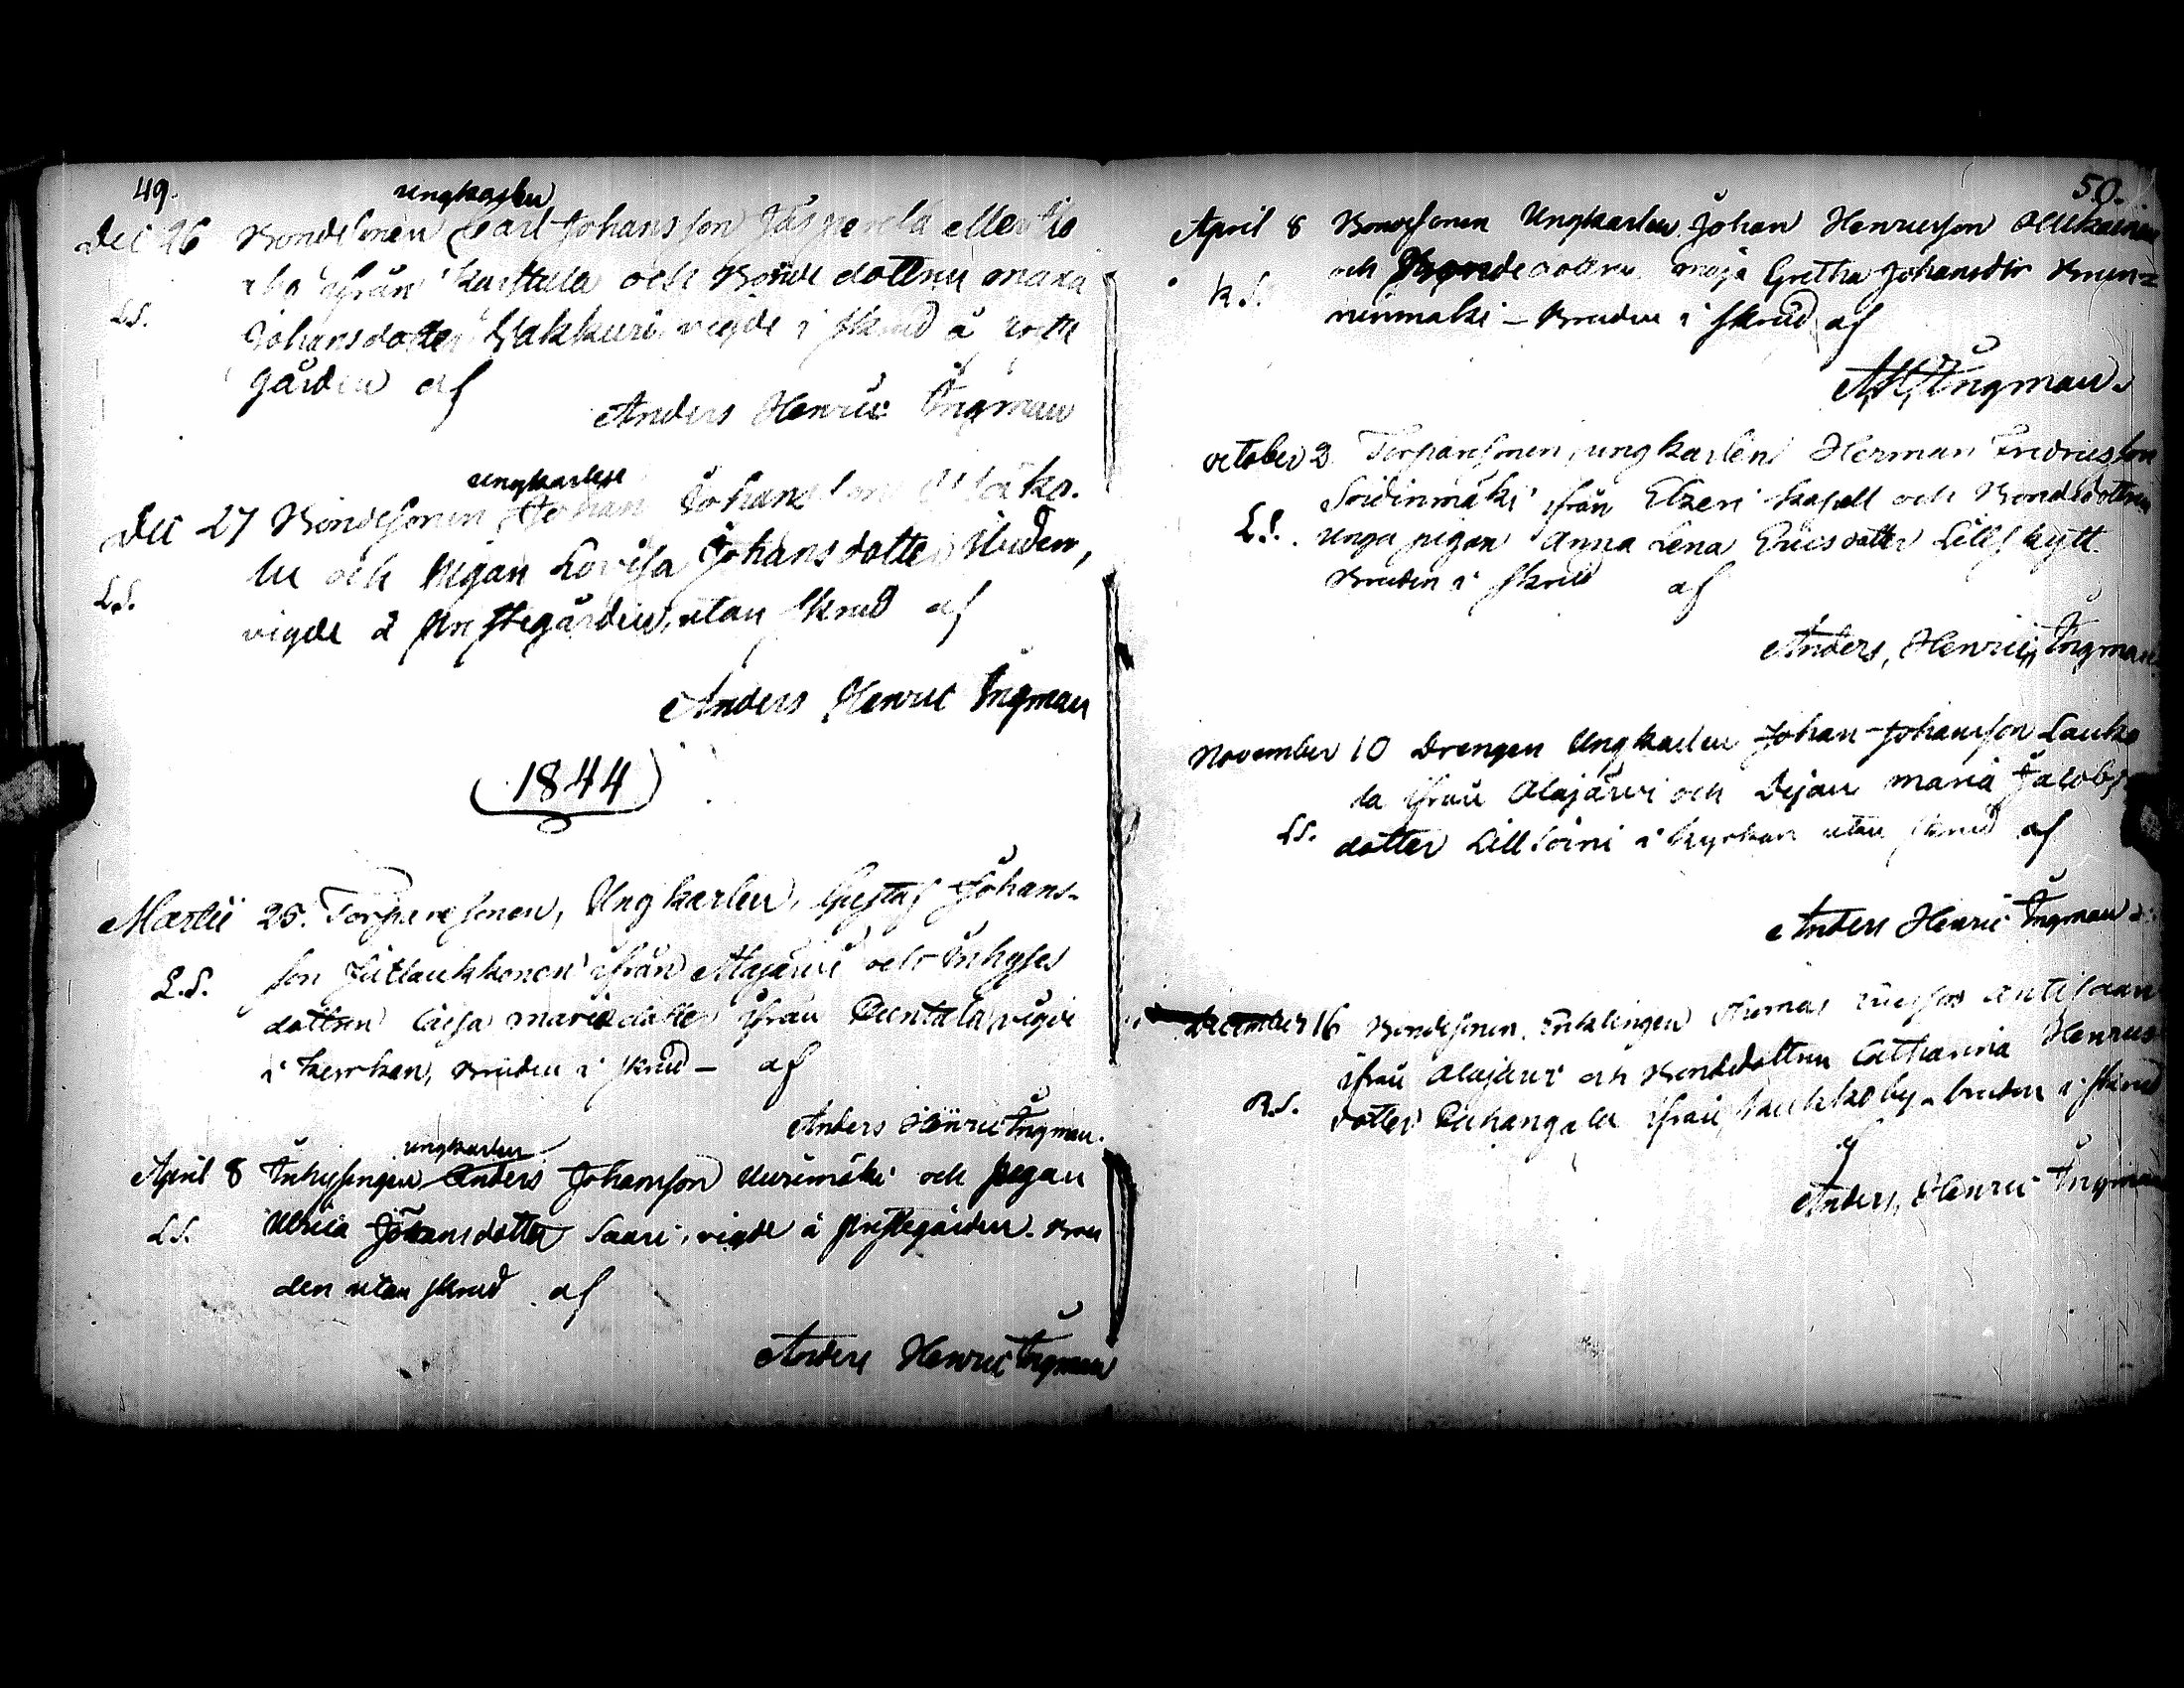 49.
ungkarlen
Dec 26 Bondesonen Carl Johansson Jäsperelä eller
ifrån Karstula och Bonde dottren Maria
LS. Johansdotter Hakkuri vigde i skrud å
gården af
Anders Henric Ingman
ungkarlen
Dec 27 Bondesonen Johan Johansson
och Pigan Lovisa Johansdotter
LS. vigde å Prestegården, utan skrud af
Anders Henric Ingman
(1844)
Martii 25. Torparesonen, Ungkarlen, Gustaf Johans-
L.S. son ifrån Alajärvi och Inhyses
dottren Caisa Mariadotter ifrån Puntala, vigde
i kyrkan, Bruden i skrud – af
Anders Henric Ingman.
ungkarlen
April 8 Inhysingen Anders Johansson Uurimäki och pigan
LS. Ulrica Johansdotter Saari, vigde å Prestegården. Bru
den utan skrud af
Anders Henric Ingman
50.
April 8 Bondesonen Ungkarlen Johan Henricsson
R.S. och Bondedottren Maja Gretha Johansdtr
ninmäki – Bruden i skrud af
A. H. Ingman.
October 2 Torparesonen, ungkarlen Herman Fredricsson
Soidinmäki ifrån Etzeri kapell och Bondedottren
L.S. unga pigan Anna Lena Ericsdotter Lillskytt.
Bruden i skrud af
Anders, Henric, Ingman
November 10 Drengen Ungkarlen Johan Johansson Lauko
la ifrån Alajärvi och Pigan Maria Jacobs
LS. dotter Lillsoini i kyrkan utan skrud af
Anders Henric Ingman
December 16 Bondesonen, Enklingen Thomas Ericsson
ifrån Alajärvi och Bondedottren Catharina Henrics
R.S. dotter Puhangala ifrån Kukkoby – bruden i skrud
af
Anders, Henric Ingman